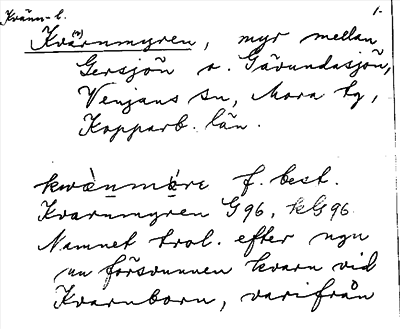 Kvänn- l.
1.
Kva(r)rnmyren, myr mellan
Gersjön o. Gävundasjön,
Venjans sn, Mora tg,
Kopparb. län.
f. best.
Kvarnmyren G96, KLG96.
Namnet trol. efter ngn
nu försvunnen kvarn vid
Kvarnborn, varifrån